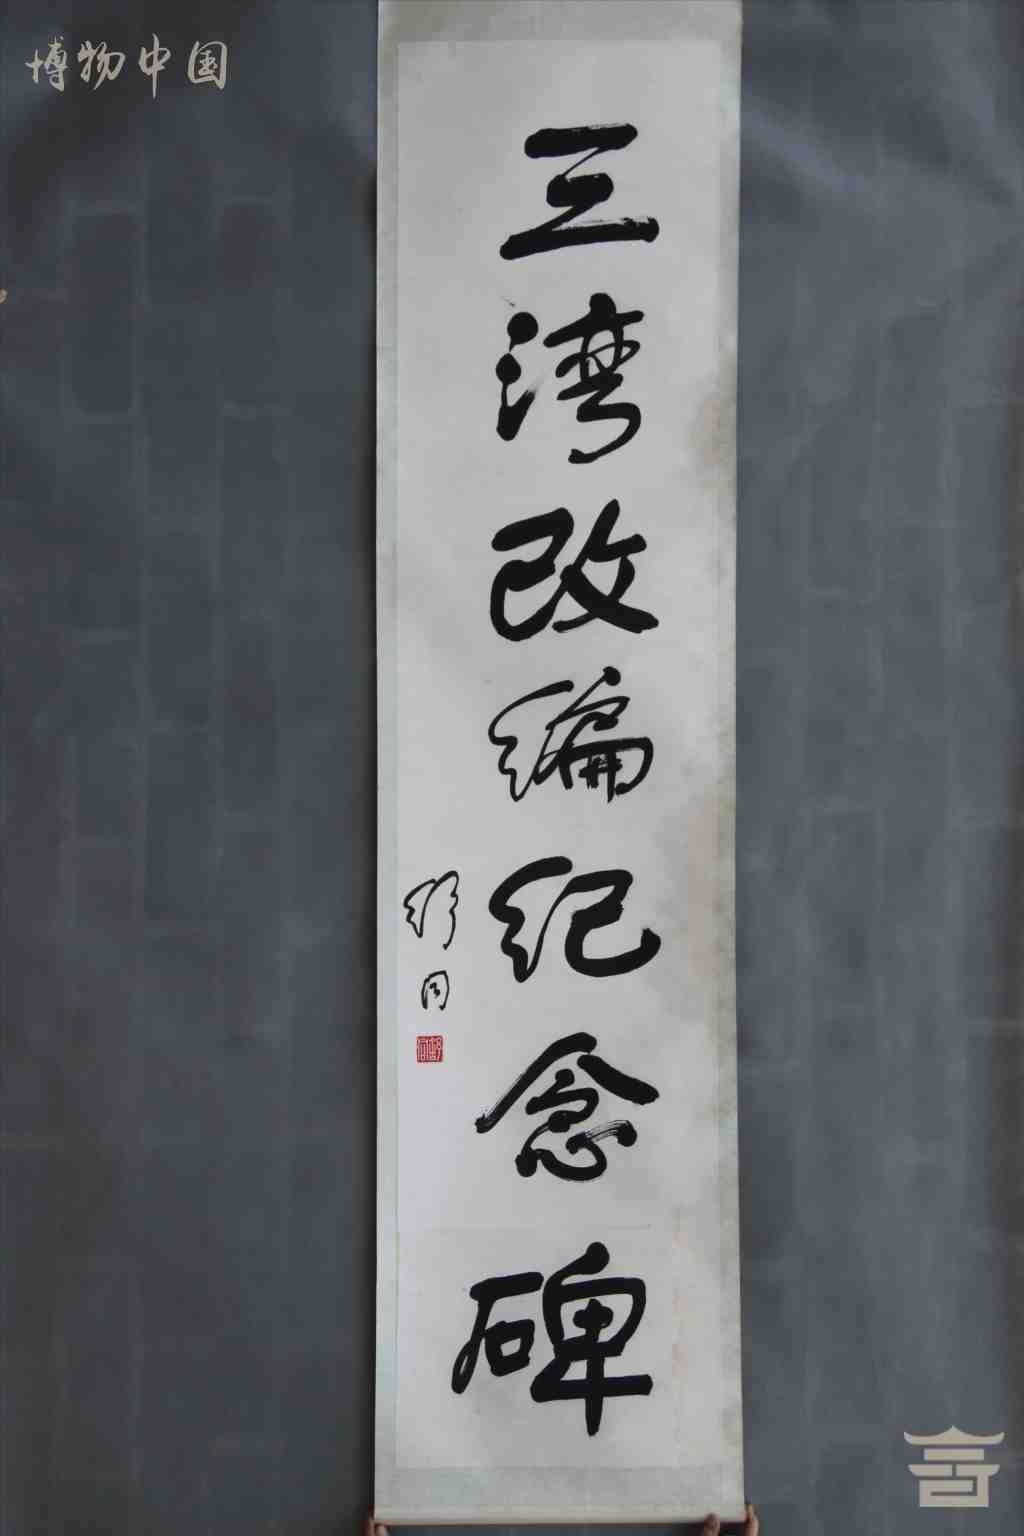 博物中国
三湾改编纪念碑
舒同